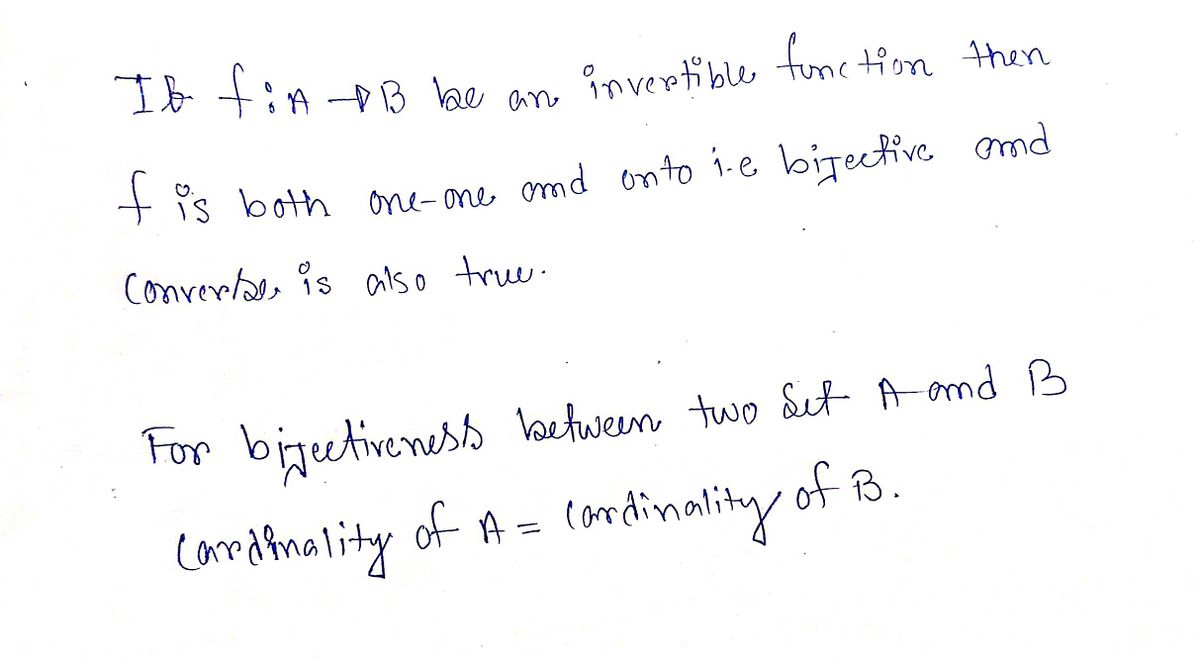 If f:A → B be an invertible function then
f is both one-one and onto i.e bijective and
Converse is also true.
For bijectiveness between two Set A and B
Cardinality of A = Cardinality of B.